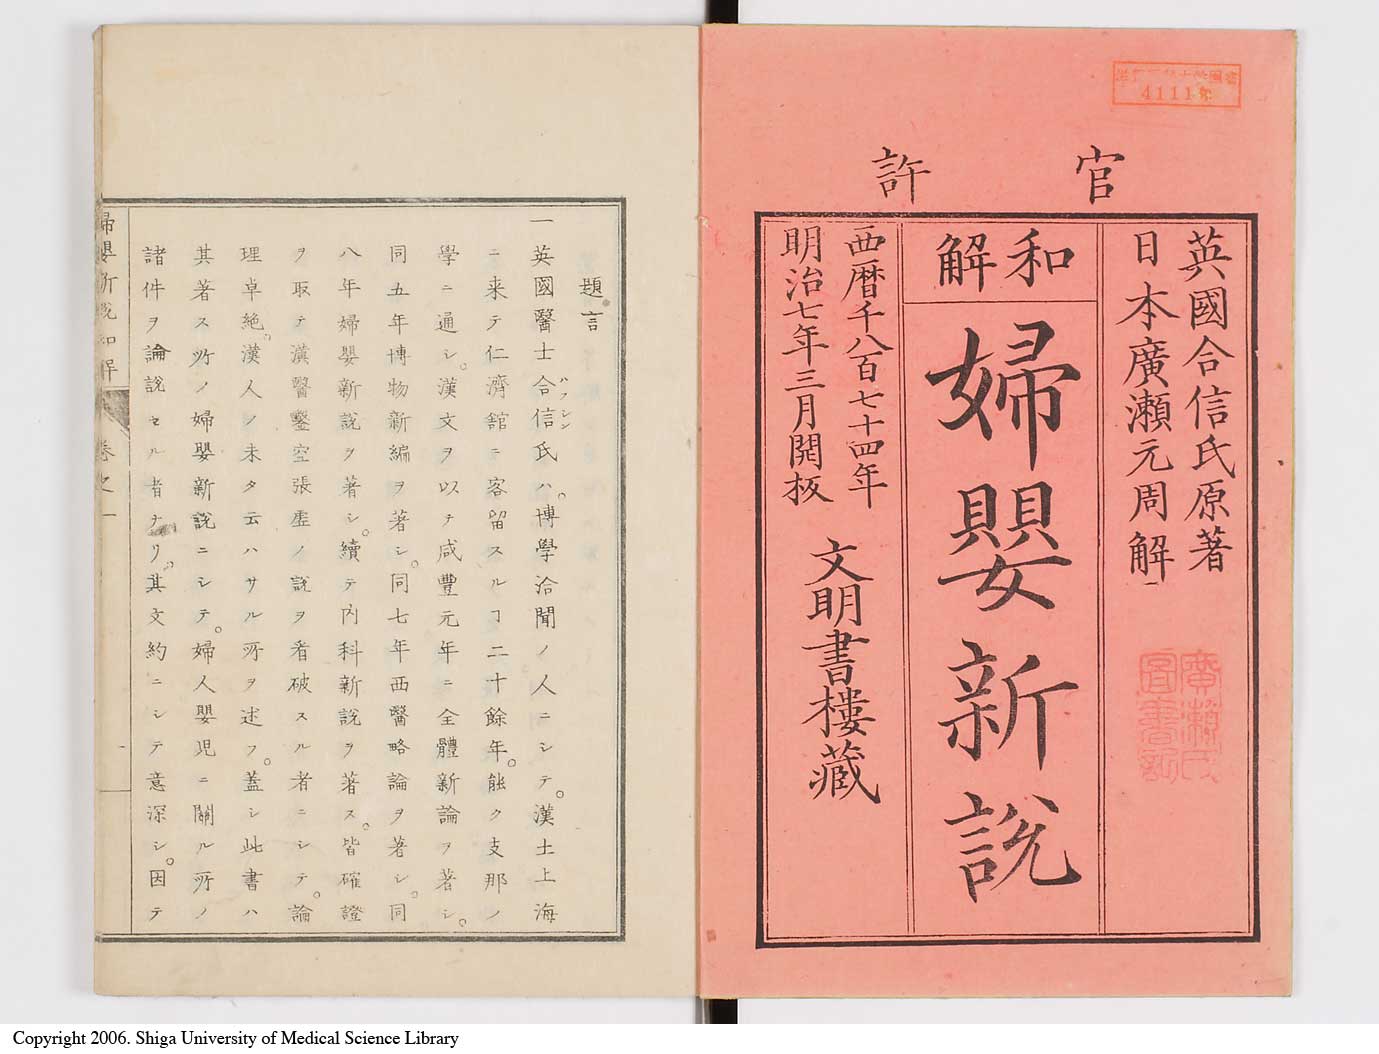 官許
英國合信氏原著
日本廣瀨元周解
和解
婦嬰新說
西曆千八百七十四年
明治七年三月開板
文明書樓藏
4111
題言
一英國醫士合信氏ハ。博學洽聞ノ人ニシテ。漢土上海
ハフシン
ニ来テ仁濟舘ニ客留スルヿ二十餘年。能ク支那ノ
學ニ通シ。漢文ヲ以テ咸豐元年ニ全體新論ヲ著シ。
同五年博物新編ヲ著シ。同七年西醫略論ヲ著シ。同
八年婦嬰新說ヲ著シ。續テ内科新說ヲ著ス。皆確證
ヲ取テ漢醫鑿空張虛ノ說ヲ看破スル者ニシテ。論
理卓絶。漢人ノ未タ云ハサル所ヲ述フ。蓋シ此書ハ
其著ス所ノ婦嬰新說ニシテ。婦人嬰児ニ關ル所ノ
諸件ヲ論說セル者ナリ。其文約ニシテ意深シ。因テ
婦嬰新說和解 卷之一
Copyright 2006. Shiga University of Medical Science Library